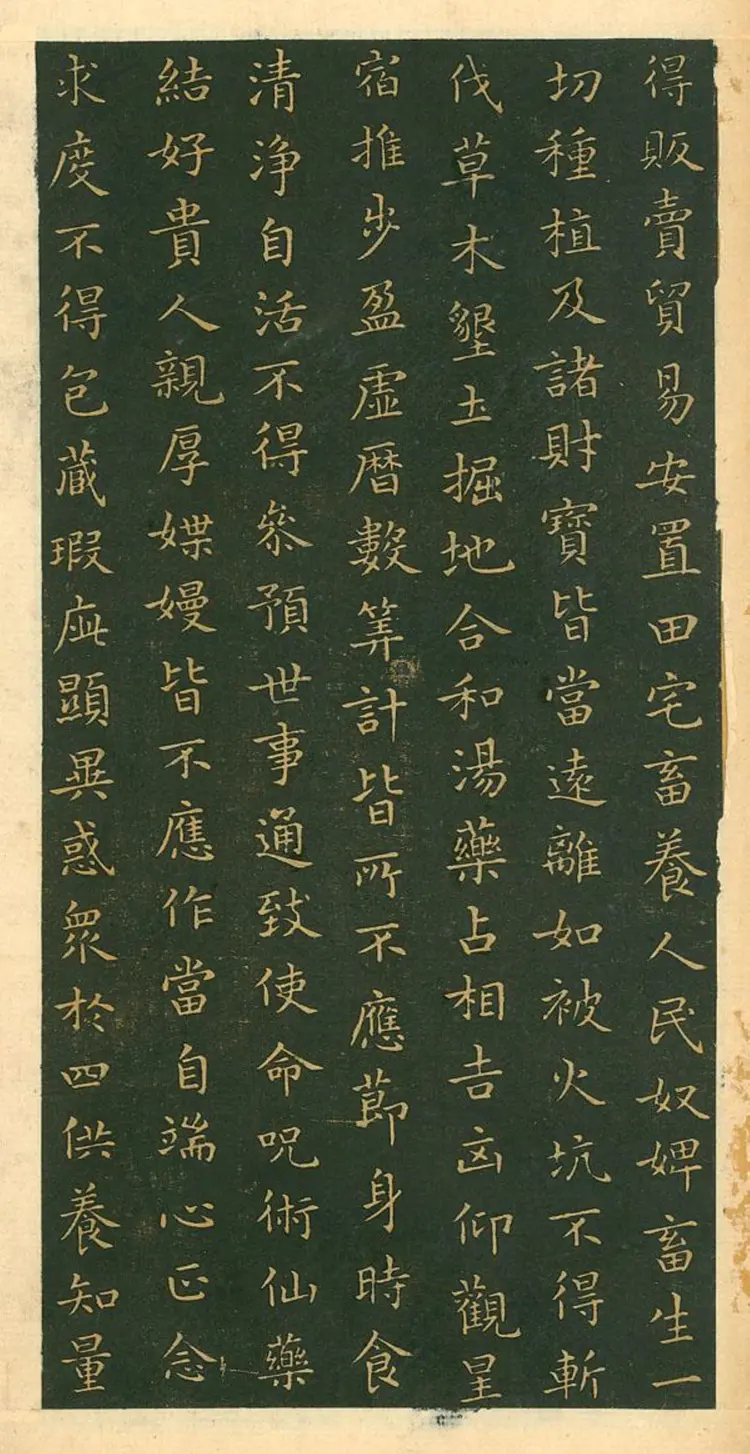 得販賣貿易安置田宅畜養人民奴婢畜生一
切種植及諸財寶皆當遠離如被火坑不得斬
伐草木墾土掘地合和湯藥占相吉凶仰觀星
宿推步盈虛曆數筭計皆所不應莭身時食
清淨自活不得叅預世事通致使命呪術仙藥
結好貴人親厚媟嫚皆不應作當自端心正念
求度不得包藏瑕疵顯異惑眾於四供養知量